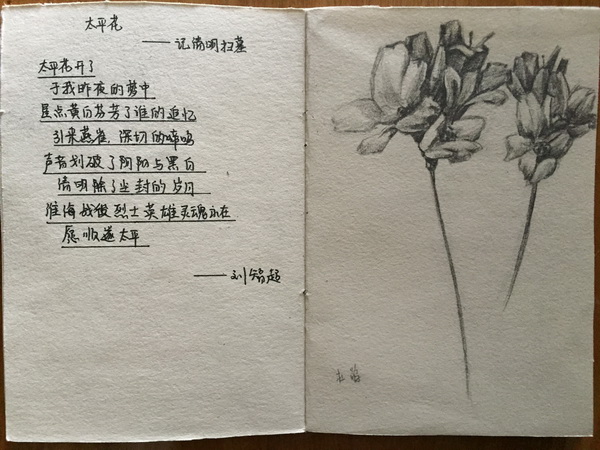 太平花
——记清明扫墓
太平花开了
于我昨夜的梦中
星点黄白芬芳了谁的追忆
引来燕雀,深切的啼鸣
声音划破了阴阳与黑白
清明除了尘封的岁月
淮海战役烈士英雄灵魂永在
愿顺遂太平
——刘智超